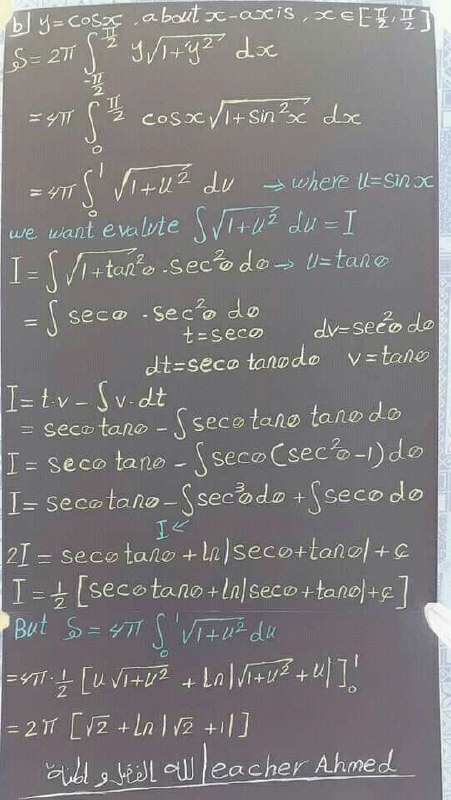 b) y=cosx, about x-axis, x∈[-π/2, π/2]
S = 2π ∫_{-π/2}^{π/2} y√(1+y'²) dx
= 4π ∫_0^{π/2} cosx√(1+sin²x) dx
= 4π ∫_0^1 √(1+u²) du → where u=sinx
we want evalute ∫√(1+u²) du = I
I = ∫√(1+tan²θ) · sec²θ dθ → u=tanθ
= ∫ secθ · sec²θ dθ
t=secθ dv=sec²θ dθ
dt=secθ tanθ dθ v=tanθ
I = t·v - ∫v·dt
= secθ tanθ - ∫secθ tanθ tanθ dθ
I = secθ tanθ - ∫secθ(sec²θ-1)dθ
I = secθ tanθ - ∫sec³θ dθ + ∫secθ dθ
I ↙
2I = secθ tanθ + Ln|secθ+tanθ| + c
I = 1/2 [secθ tanθ + Ln|secθ+tanθ| + c]
But S = 4π ∫_0^1 √(1+u²) du
= 4π · 1/2 [u√(1+u²) + Ln|√(1+u²) + u|]_0^1
= 2π [√2 + Ln|√2 + 1|]
لله الفضل و المنة Teacher Ahmed